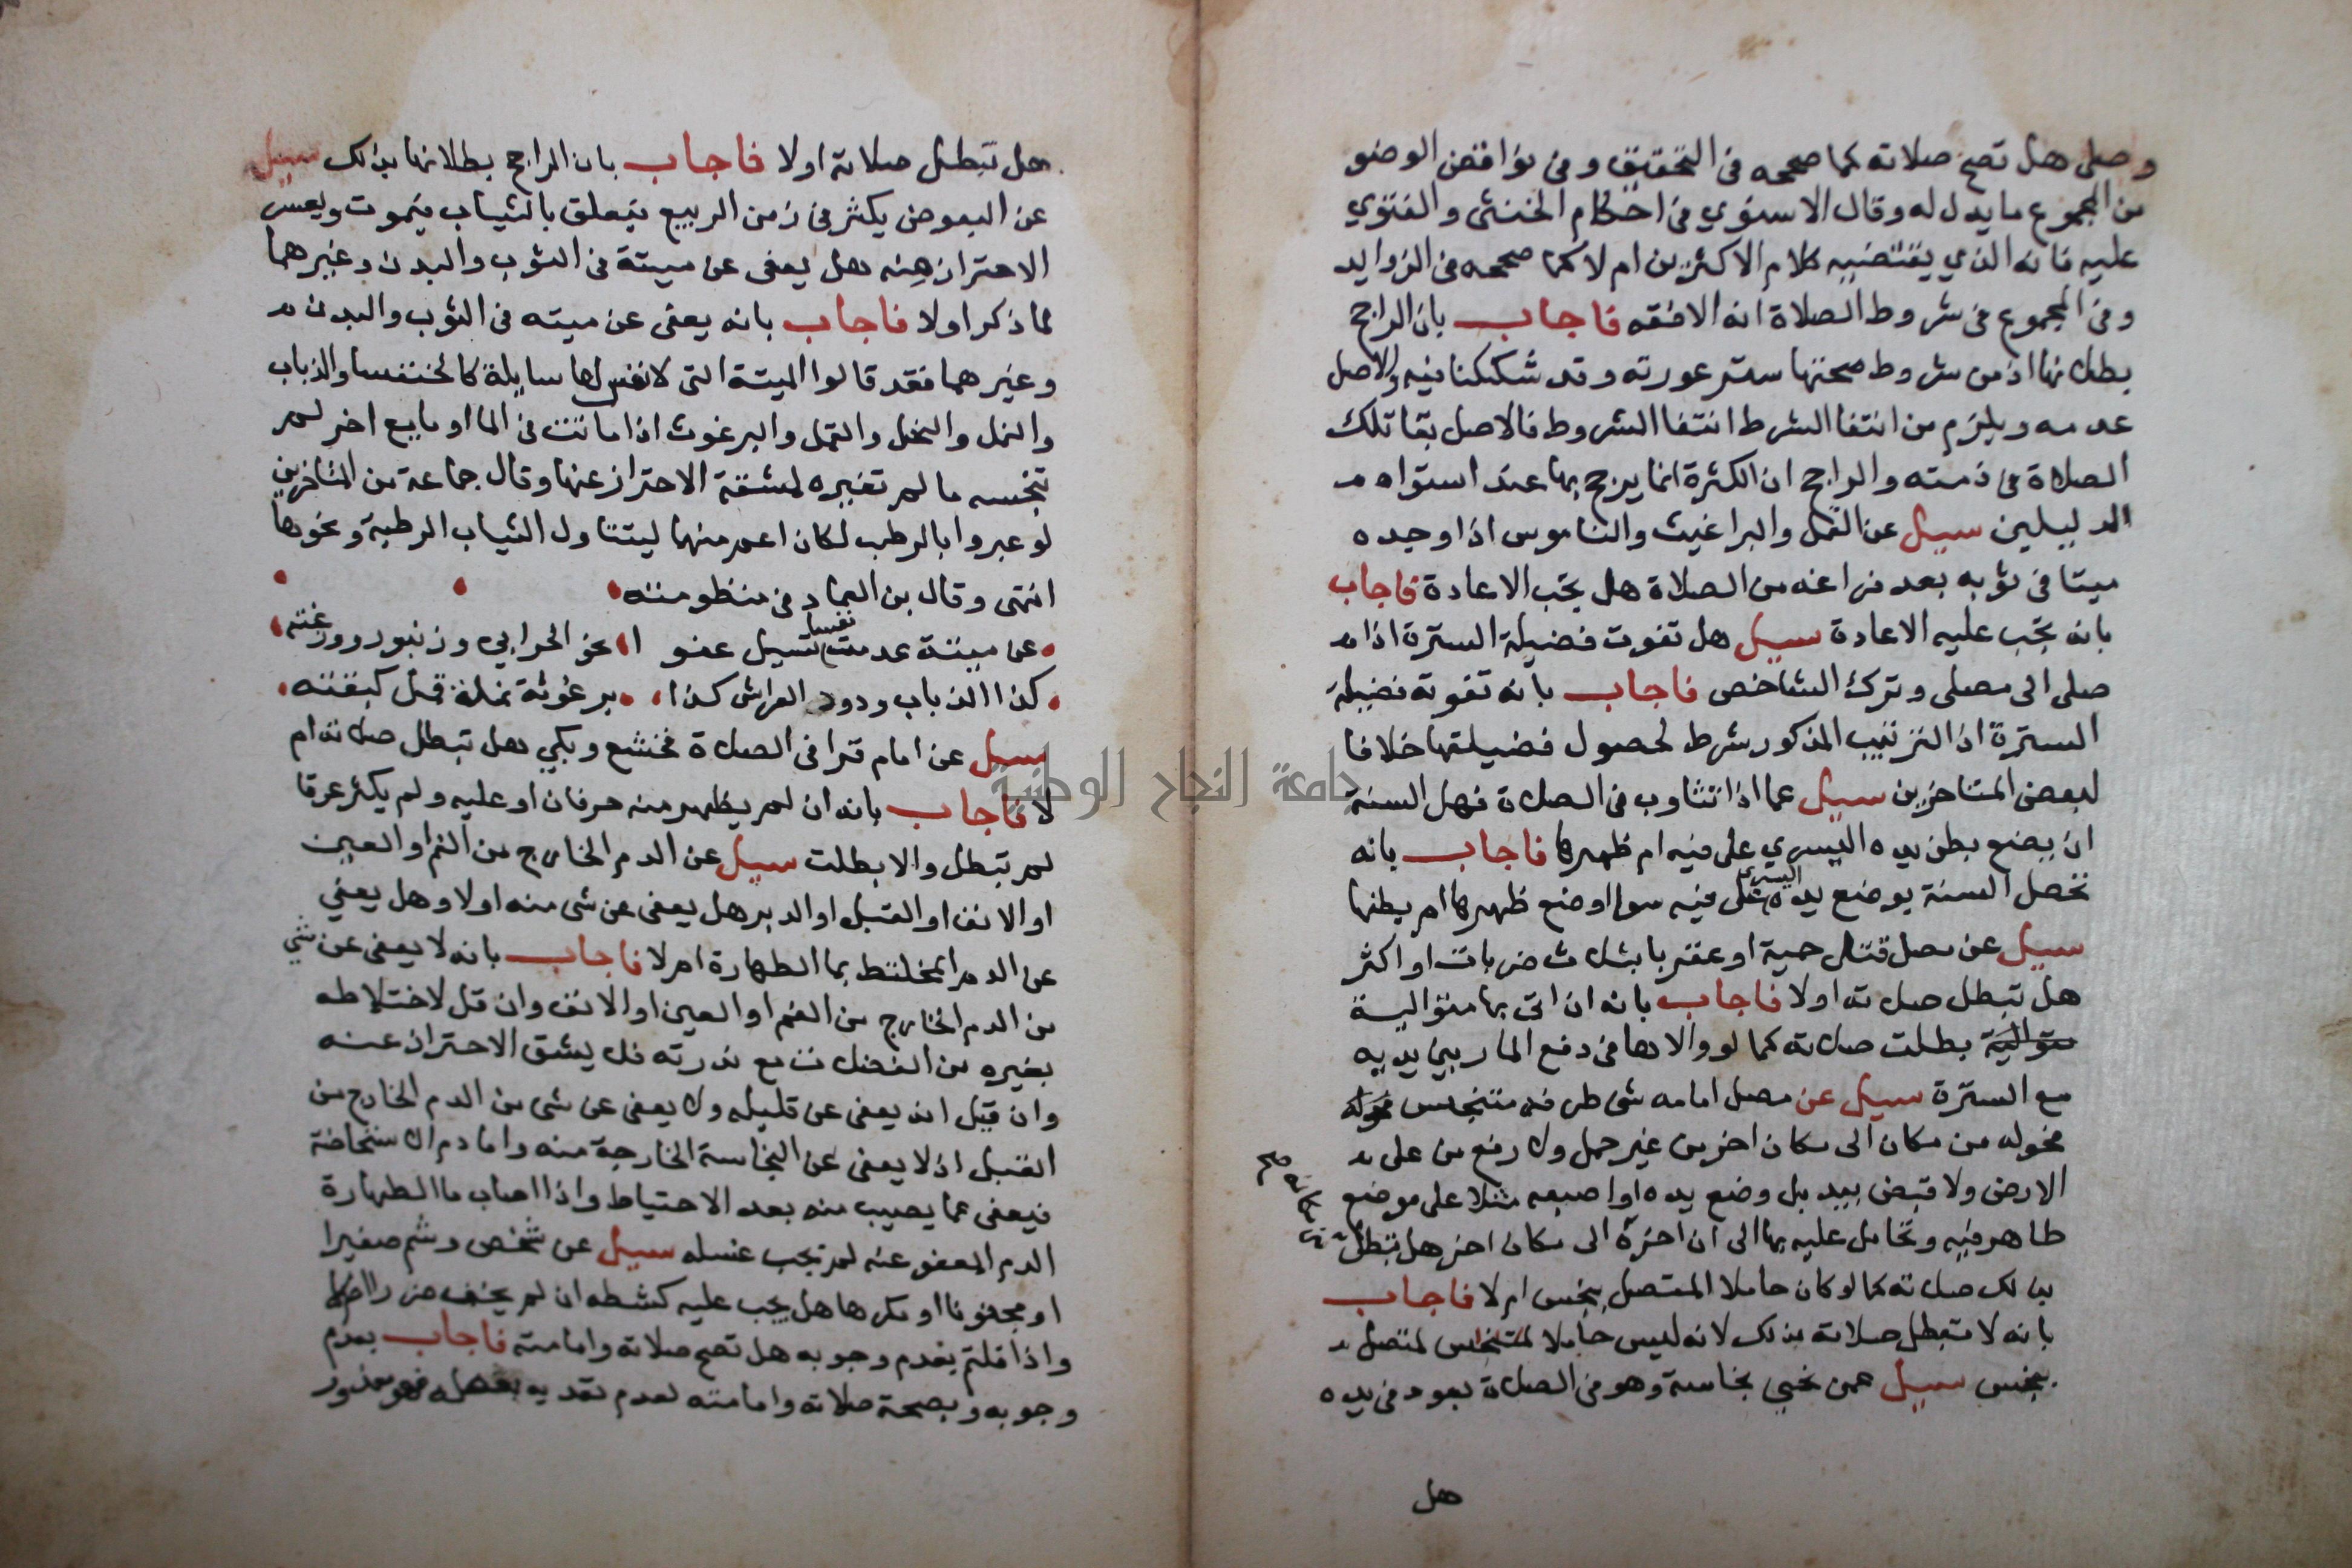 وصلى هل تصح صلاته كما صححه في التحقيق وفي نواقض الوضو
من المجموع ما يدل له وقال الاسنوي في احكام الخنثى والفتوي
عليه فانه الذي يقتضيه كلام الاكثرين ام لا كما صححه في الزوايد
وفي المجموع في شروط الصلاة انه الافقه فاجاب بان الراجح
بطلانها اذ من شروط صحتها ستر عورته وقد شككنا فيه والاصل
عدمه ويلزم من انتفا الشرط انتفا المشروط فالاصل بقا تلك
الصلاة في ذمته والراجح ان الكثرة انما يرجح بها عند استواء
الدليلين سيل عن القمل والبراغيث والناموس اذا وجده
ميتا في ثوبه بعد فراغه من الصلاة هل يجب الاعادة فاجاب
بانه يجب عليه الاعادة سيل هل تفوت فضيلة السترة اذا
صلى الى مصلى وترك الشاخص فاجاب بانه تفوته فضيلة
السترة اذ الترتيب المذكور شرط لحصول فضيلتها خلافا
لبعض المتاخرين سيل عما اذا تثاوب في الصلاة فهل السنة
ان يضع بطن يده اليسري على فيه ام ظهرها فاجاب بانه
تحصل السنة بوضع يده اليسرى على فيه سوا وضع ظهرها ام بطنها
سيل عن مصل قتل حية او عقربا بثلاث ضربات او اكثر
هل تبطل صلاته اولا فاجاب بانه ان اتى بها متوالية
متوالية بطلت صلاته كما لو والاها في دفع المار بين يديه
مع السترة سيل عن مصل امامه شي طرفه متنجس فحوله
فحوله من مكان الى مكان اخر من غير حمل ولا رفع من على
الارض ولا قبض بيد بل وضع يده او اصبعه مثلا على موضع
طاهر فيه وتحامل عليه بها الى ان اخره الى مكان اخر هل تبطل
من مكانه صح
بذلك صلاته كما لو كان حاملا المتصل بنجس ام لا فاجاب
بانه لا تبطل صلاته بذلك لانه ليس حاملا لمتنجس لمتصل
بنجس سيل عمن نحي نجاسة وهو في الصلاة بعود في يده
هل
هل تبطل صلاته اولا فاجاب بان الراجح بطلانها بذلك سيل
عن البعوض يكثر في زمن الربيع يتعلق بالثياب يموت ويعسر
الاحتراز منه هل يعفى عن ميتة في الثوب والبدن وغيرهما
لما ذكر اولا فاجاب بانه يعفى عن ميته في الثوب والبدن
وغيرهما فقد قالوا الميتة التي لا نفس لها سايلة كالخنفسا والذباب
والنمل والنحل والقمل والبرغوث اذا ماتت في الما او مايع اخر لم
تنجسه ما لم تغيره لمشقة الاحتراز عنها وقال جماعة من المتاخرين
لو عبروا بالرطب لكان اعم منهما ليتناول الثياب الرطبة ونحوها
انتهى وقال بن العماد في منظومته
عن ميتة عدمت نفسا تسيل عفو انحو الحرابي وزنبور ووزغته
كذا الذباب ودود الفراش كذا برغوثة نملة قمل كبقته
سيل عن امام قرا في الصلاة فخشع وبكي هل تبطل صلاته ام
لا فاجاب بانه ان لم يظهر منه حرفان او عليه ولم يكثر عرفا
لم تبطل والا بطلت سيل عن الدم الخارج من الفم او العين
او الانف او القبل او الدبر هل يعفى عن شي منه اولا وهل يعفي
عن الدم المختلط بما الطهارة ام لا فاجاب بانه لا يعفى عن شي
من الدم الخارج من الفم او العين او الانف وان قل لاختلاطه
بغيره من الفضلات مع ندرته فلا يشق الاحتراز عنه
وان قيل انه يعفى عن قليله ولا يعفى عن شي من الدم الخارج من
القبل اذ لا يعفى عن النجاسة الخارجة منه واما دم الاستحاضة
فيعفى عما يصيب منه بعد الاحتياط واذا اصاب ما الطهارة
الدم المعفو عنه لم يجب غسله سيل عن شخص وشم صغيرا
او مجنونا او مكرها هل يجب عليه كشطه ان لم يخف ضررا ام لا
واذا قلتم بعدم وجوبه هل تصح صلاته وامامته فاجاب بعدم
وجوبه وبصحة صلاته وامامته لعدم تعديه بفعله فهو معذور
جامعة النجاح الوطنية